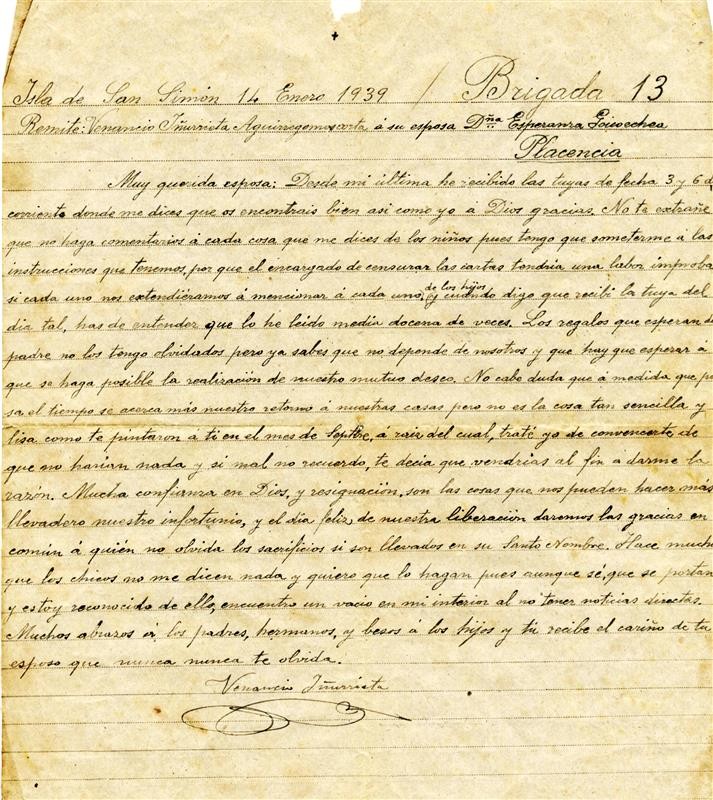 Isla de San Simón 14 Enero 1939 / Brigada 13
Remite: Venancio Iñurrieta Aguirregomoscorta á su esposa Dña Esperanza Goicoechea
Placencia
Muy querida esposa: Desde mi última he recibido las tuyas de fecha 3 y 6 d
corriente donde me dices que os encontrais bien asi como yo á Dios gracias. No te extrañe
que no haga comentarios á cada cosa que me dices de los niños pues tengo que someterme á las
instrucciones que tenemos, por que el encargado de censurar las cartas tendria una labor improba
si cada uno nos extendiéramos á mencionar á cada uno de los hijos y cuando digo que recibi la tuya del
dia tal, has de entender que lo he leido media docena de veces. Los regalos que esperan de
padre no los tengo olvidados pero ya sabes que no depende de nosotros y que hay que esperar á
que se haga posible la realización de nuestro mutuo deseo. No cabe duda que á medida que pa
sa el tiempo se acerca más nuestro retorno á nuestras casas pero no es la cosa tan sencilla y
lisa como te pintaron á ti en el mes de Septbre, á raiz del cual, traté yo de convencerte de
que no harian nada y si mal no recuerdo, te decia que vendrias al fin a darme la
razón. Mucha confianza en Dios, y resignación, son las cosas que nos pueden hacer más
llevadero nuestro infortunio, y el dia feliz de nuestra liberación daremos las gracias en
común á quién no olvida los sacrificios si son llevados en su Santo Nombre. Hace mucho
que los chicos no me dicen nada y quiero que lo hagan pues aunque sé, que se portan
y estoy reconocido de ello, encuentro un vacio en mi interior al no tener noticias directas.
Muchos abrazos á los padres, hermanos, y besos á los hijos y tú recibe el cariño de tu
esposo que nunca nunca te olvida.
Venancio Iñurrieta